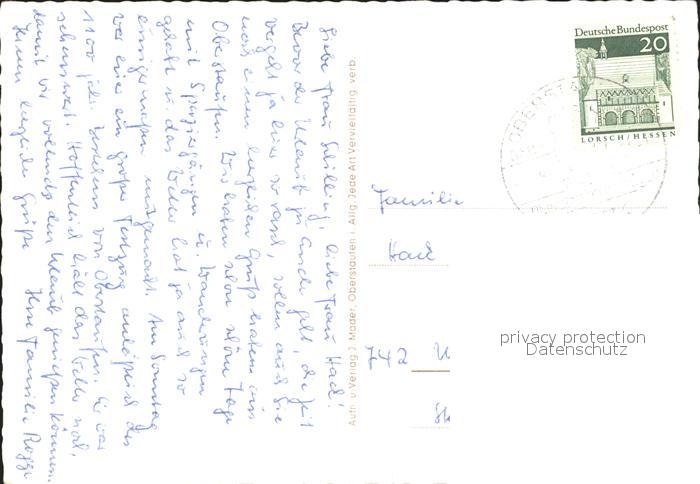 Liebe Frau Schilling, liebe Frau Hack!
Bevor der Urlaub zu Ende geht, die Zeit
vergeht ja hier so rasch, wollen auch Sie
noch einen herzlichen Gruß haben aus
Oberstaufen. Wir haben schon schöne Tage
mit Spaziergängen u. Wanderungen
gehabt u. das Wetter hat ja auch so
einigermaßen mitgemacht. Am Sonntag
war hier ein großer Festzug anläßlich des
1100 jähr. Bestehens von Oberstaufen. Es war
sehenswert. Hoffentlich hält das Wetter noch,
damit wir vollends den Urlaub genießen können.
Ihnen herzliche Grüße Ihre Familie
Auth. u Verlag J Mader, Oberstaufen i Allg Jede Art Vervielfältig verb
Deutsche Bundespost
20
LORSCH/HESSEN
OBERST
Familie
Hack
742
privacy protection
Datenschutz